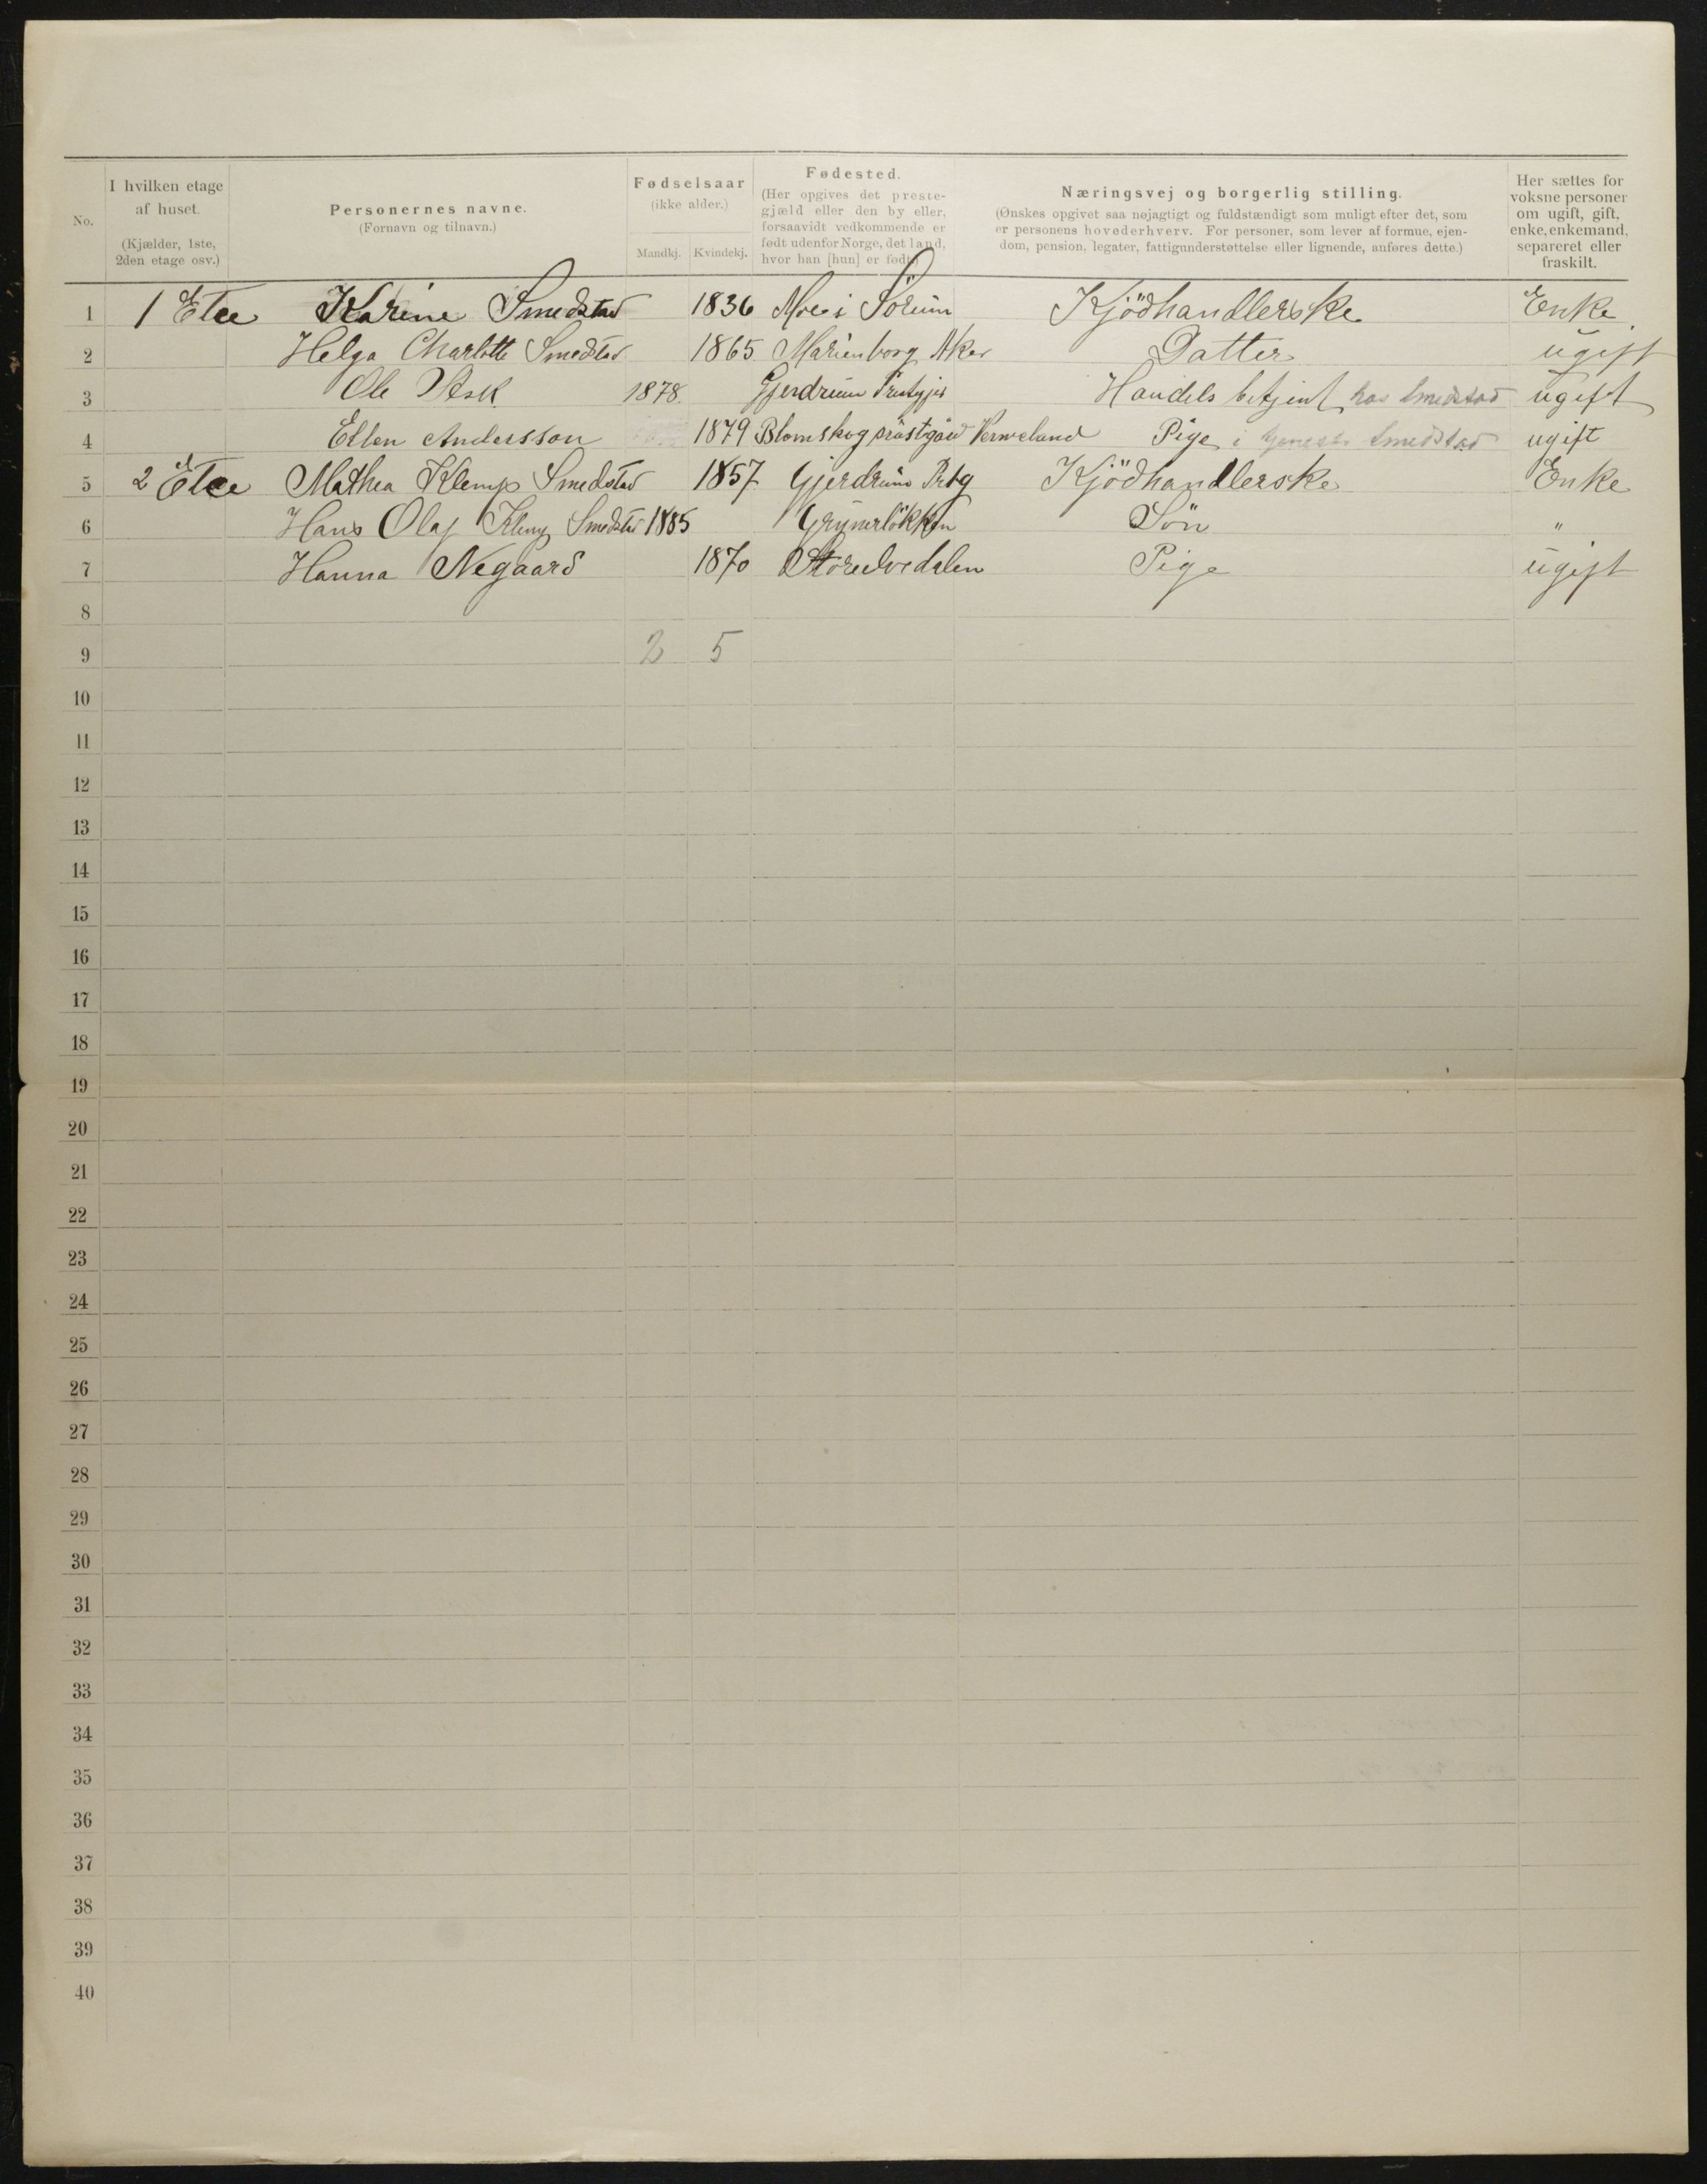 No.
I hvilken etage
af huset.
(Kjælder, 1ste,
2den etage osv.)
Personernes navne.
(Fornavn og tilnavn.)
Fødselsaar
(ikke alder.)
Mandkj. Kvindekj.
Fødested.
(Her opgives det preste-
gjæld eller den by eller,
forsaavidt vedkommende er
født udenfor Norge, det land,
hvor han [hun] er født.)
Næringsvej og borgerlig stilling.
(Ønskes opgivet saa nøjagtigt og fuldstændigt som muligt efter det, som
er personens hovederhverv. For personer, som lever af formue, ejen-
dom, pension, legater, fattigunderstøttelse eller lignende, anføres dette.)
Her sættes for
voksne personer
om ugift, gift,
enke, enkemand,
separeret eller
fraskilt.
1 1 Etce Karine Smedstad 1836 Moe i Sörum Kjödhandlerske Enke
2 Helga Charlotte Smedstad 1865 Marienborg Aker Datter ugift
3 Ole Ask 1878 Gjerdrum Handels betjent hos Smedstad ugift
4 Ellen Andersson 1879 Blomskog Vermeland Pige i Smedstad ugift
5 2 Etce Mathea Klemp Smedstad 1857 Gjerdrum Prtg Kjödhandlerske Enke
6 Hans Olaf Klemp Smedstad 1885 Grünerlökken Sön "
7 Hanna Negaard 1870 Storelvedalen Pige ugift
8
9 2 5
10
11
12
13
14
15
16
17
18
19
20
21
22
23
24
25
26
27
28
29
30
31
32
33
34
35
36
37
38
39
40